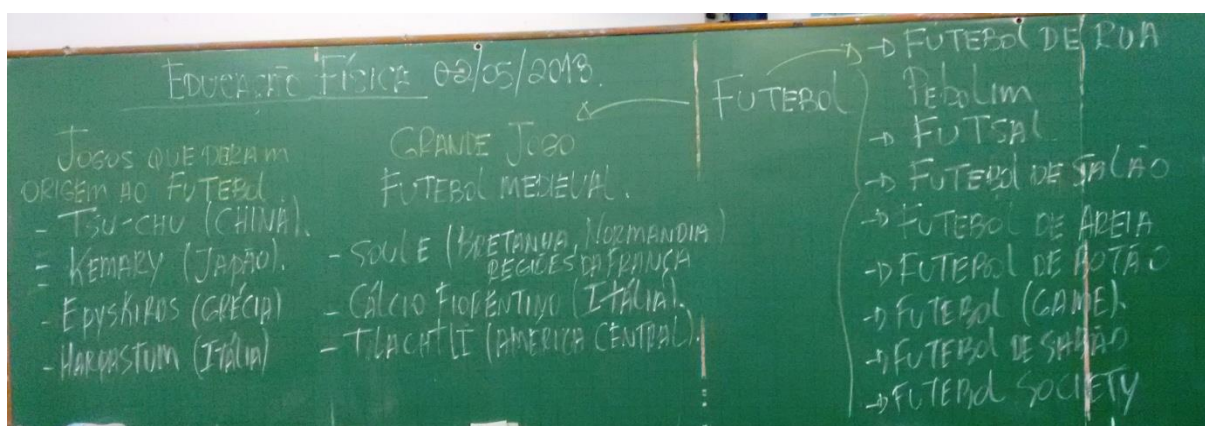 EDUCAÇÃO FÍSICA 02/05/2018.
JOGOS QUE DERAM
ORIGEM AO FUTEBOL
- TSU-CHU (CHINA).
- KEMARY (JAPÃO).
- EPYSKIROS (GRÉCIA)
- HARPASTUM (ITÁLIA)
GRANDE JOGO
FUTEBOL MEDIEVAL.
- SOULE (BRETANHA, NORMANDIA)
REGIÕES DA FRANÇA
- CÁLCIO FIORENTINO (ITÁLIA).
- TLACHTLI (AMÉRICA CENTRAL).
FUTEBOL
→ FUTEBOL DE RUA
Pebolim
→ FUTSAL
→ FUTEBOL DE SALÃO
→ FUTEBOL DE AREIA
→ FUTEBOL DE BOTÃO
→ FUTEBOL (GAME).
→ FUTEBOL DE SABÃO
→ FUTEBOL SOCIETY